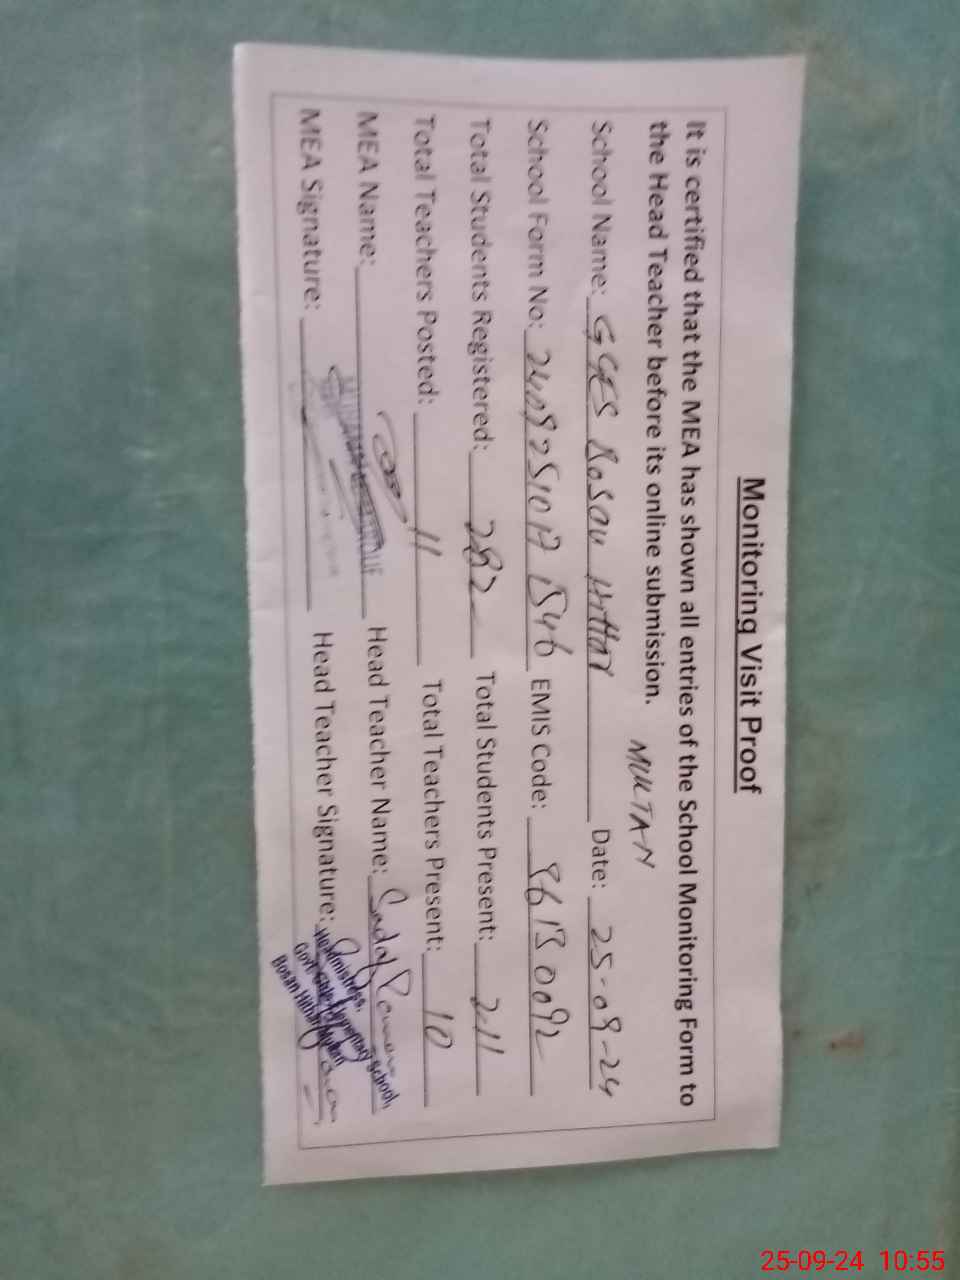 Monitoring Visit Proof
It is certified that the MEA has shown all entries of the School Monitoring Form to
the Head Teacher before its online submission.
MULTAN
School Name: GGES Bosan Hittar Date: 25-09-24
School Form No: 24092510 1546 EMIS Code: 36130092
Total Students Registered: 282 Total Students Present: 211
Total Teachers Posted: 11 Total Teachers Present: 10
MEA Name: Head Teacher Name: Sadaf
MEA Signature: Head Teacher Signature:
Headmistress,
Govt. Girls Elementary School,
Bosan Hittar Multan
25-09-24 10:55